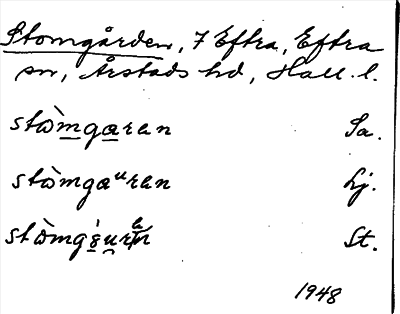 Stomgården, 7 Eftra, Eftra
sn, Årstads hd, Hall. l.
stòmgaran Sa.
stòmgaᵘran Lj.
St.
1948